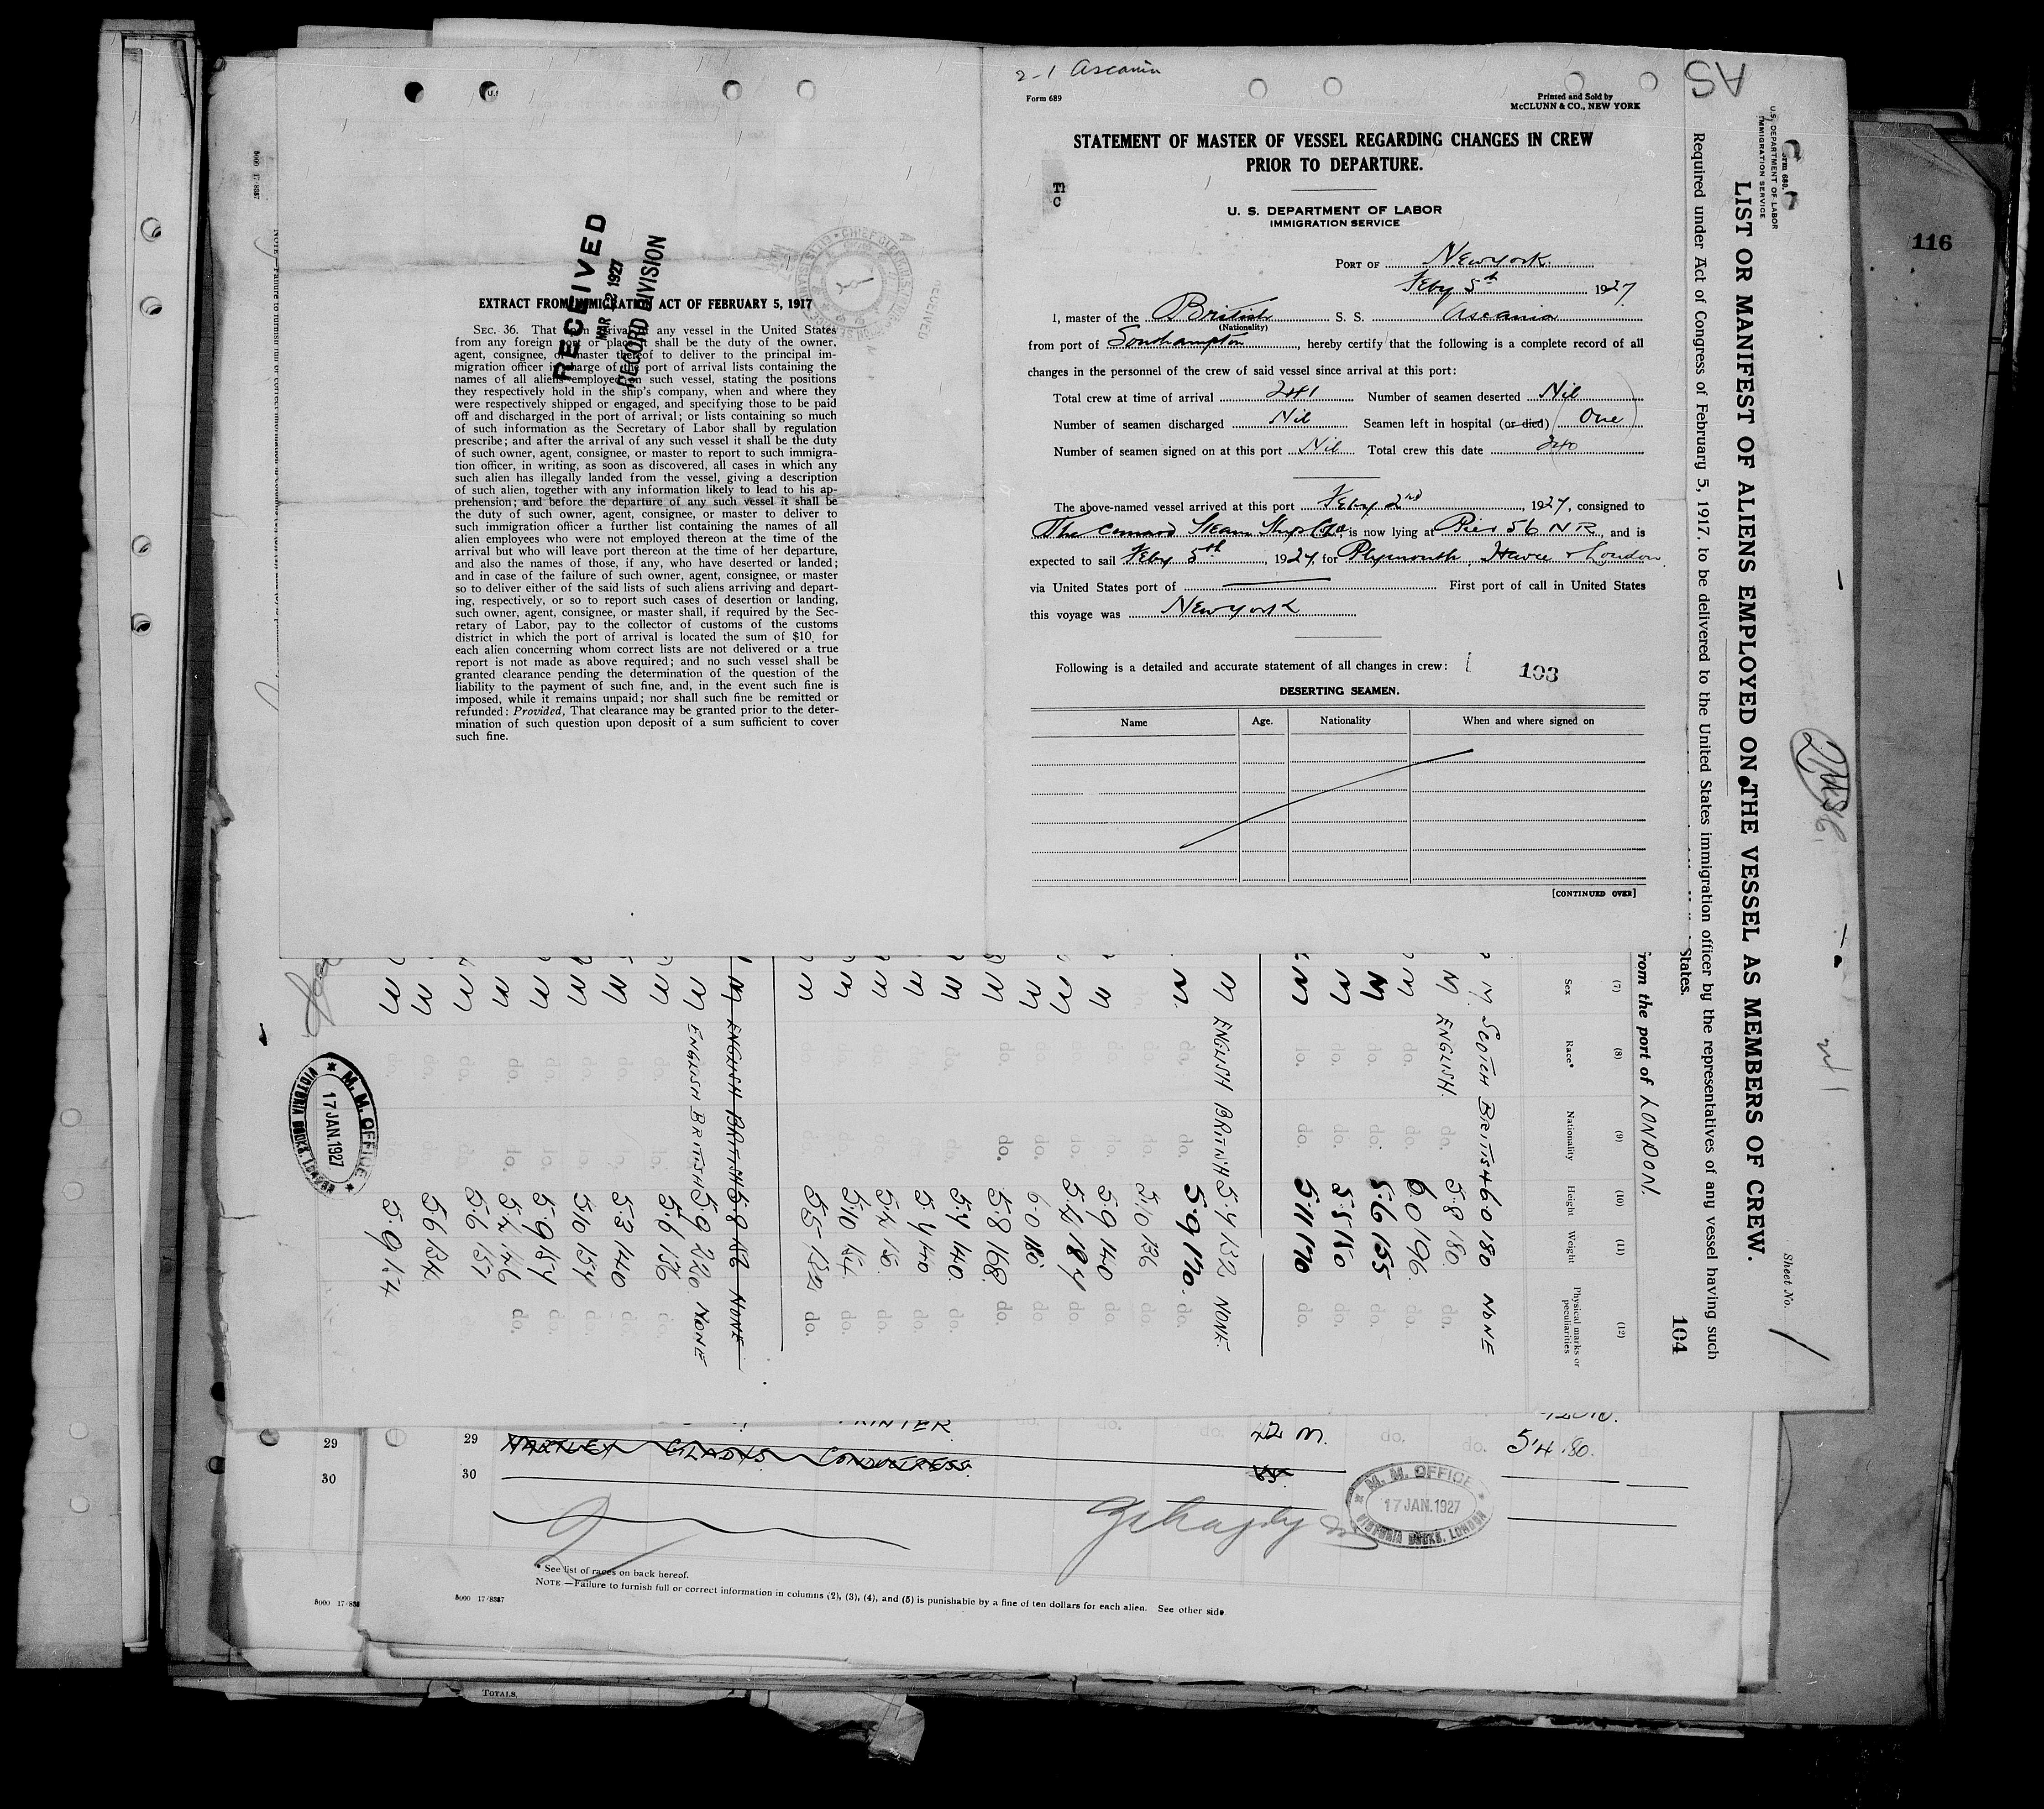 2-1 Ascania
Form 689
Printed and Sold by
McCLUNN & CO., NEW YORK
STATEMENT OF MASTER OF VESSEL REGARDING CHANGES IN CREW
PRIOR TO DEPARTURE.
U. S. DEPARTMENT OF LABOR
IMMIGRATION SERVICE
PORT OF New York
Feby 5th 1927
I, master of the British S. S. Ascania
(Nationality)
from port of Southampton, hereby certify that the following is a complete record of all
changes in the personnel of the crew of said vessel since arrival at this port:
Total crew at time of arrival 241 Number of seamen deserted Nil
Number of seamen discharged Nil Seamen left in hospital (or died) One
Number of seamen signed on at this port Nil Total crew this date 240
The above-named vessel arrived at this port Feby 2nd, 1927, consigned to
The Cunard Steam Ship Co. is now lying at Pier 56 N R, and is
expected to sail Feby 5th, 1927, for Plymouth, Havre & London
via United States port of First port of call in United States
this voyage was New York
Following is a detailed and accurate statement of all changes in crew:
103
DESERTING SEAMEN.
Name Age. Nationality When and where signed on
[CONTINUED OVER]
RECEIVED
MAR 12 1927
RECORD DIVISION
EXTRACT FROM IMMIGRATION ACT OF FEBRUARY 5, 1917
SEC. 36. That upon arrival of any vessel in the United States
from any foreign port or place it shall be the duty of the owner,
agent, consignee, or master thereof to deliver to the principal im-
migration officer in charge of the port of arrival lists containing the
names of all aliens employed on such vessel, stating the positions
they respectively hold in the ship's company, when and where they
were respectively shipped or engaged, and specifying those to be paid
off and discharged in the port of arrival; or lists containing so much
of such information as the Secretary of Labor shall by regulation
prescribe; and after the arrival of any such vessel it shall be the duty
of such owner, agent, consignee, or master to report to such immigra-
tion officer, in writing, as soon as discovered, all cases in which any
such alien has illegally landed from the vessel, giving a description
of such alien, together with any information likely to lead to his ap-
prehension; and before the departure of any such vessel it shall be
the duty of such owner, agent, consignee, or master to deliver to
such immigration officer a further list containing the names of all
alien employees who were not employed thereon at the time of the
arrival but who will leave port thereon at the time of her departure,
and also the names of those, if any, who have deserted or landed;
and in case of the failure of such owner, agent, consignee, or master
so to deliver either of the said lists of such aliens arriving and depart-
ing, respectively, or so to report such cases of desertion or landing,
such owner, agent, consignee, or master shall, if required by the Sec-
retary of Labor, pay to the collector of customs of the customs
district in which the port of arrival is located the sum of $10 for
each alien concerning whom correct lists are not delivered or a true
report is not made as above required; and no such vessel shall be
granted clearance pending the determination of the question of the
liability to the payment of such fine, and, in the event such fine is
imposed, while it remains unpaid; nor shall such fine be remitted or
refunded: Provided, That clearance may be granted prior to the deter-
mination of such question upon deposit of a sum sufficient to cover
such fine.
116
AS
U.S. DEPARTMENT OF LABOR
IMMIGRATION SERVICE
LIST OR MANIFEST OF ALIENS EMPLOYED ON THE VESSEL AS MEMBERS OF CREW.
Required under Act of Congress of February 5, 1917, to be delivered to the United States immigration officer by the representatives of any vessel having such
States.
from the port of LONDON.
Sheet No. 1
104
(7) (8) (9) (10) (11) (12)
Sex Race* Nationality Height Weight Physical marks or peculiarities
M. SCOTCH BRITISH 6.0 180 NONE
M ENGLISH. do. 5.8 180. do.
M do. do. 6.0 196. do.
M do. do. 5.6 155 do.
M do. do. 5.5 150 do.
M do. do. 5.11 170 do.
M ENGLISH BRITISH 5.4 132 NONE.
M. do. do. 5.9 170. do.
do. do. 5.10 136 do.
M do. do. 5.9 140 do.
M do. do. 5.2 184 do.
M do. do. 6.0 180. do.
M do. do. 5.8 168. do.
M do. do. 5.4 140. do.
M 5.4 140 do.
M ENGLISH BRITISH 5.8 NONE
M ENGLISH BRITISH 5.9 220. NONE
M do. do. 5.6 136 do.
M do. do. 5.3 140 do.
M do. do. 5.10 154 do.
M do. do. 5.9 154 do.
M do. do. 5.2 146 do.
M do. do. 5.6 157
M do. 5.6 134
M do. 5.9
M. M. OFFICE
17 JAN. 1927
VICTORIA DOCKS, LONDON
PRINTER
29 29 HARTLEY GLADYS CONDUCTRESS 22 M. do. do. 5'4 .80.
30 30
M. M. OFFICE
17 JAN. 1927
VICTORIA DOCKS, LONDON
* See list of races on back hereof.
NOTE.—Failure to furnish full or correct information in columns (2), (3), (4), and (5) is punishable by a fine of ten dollars for each alien. See other side.
5000 17/8387
TOTALS